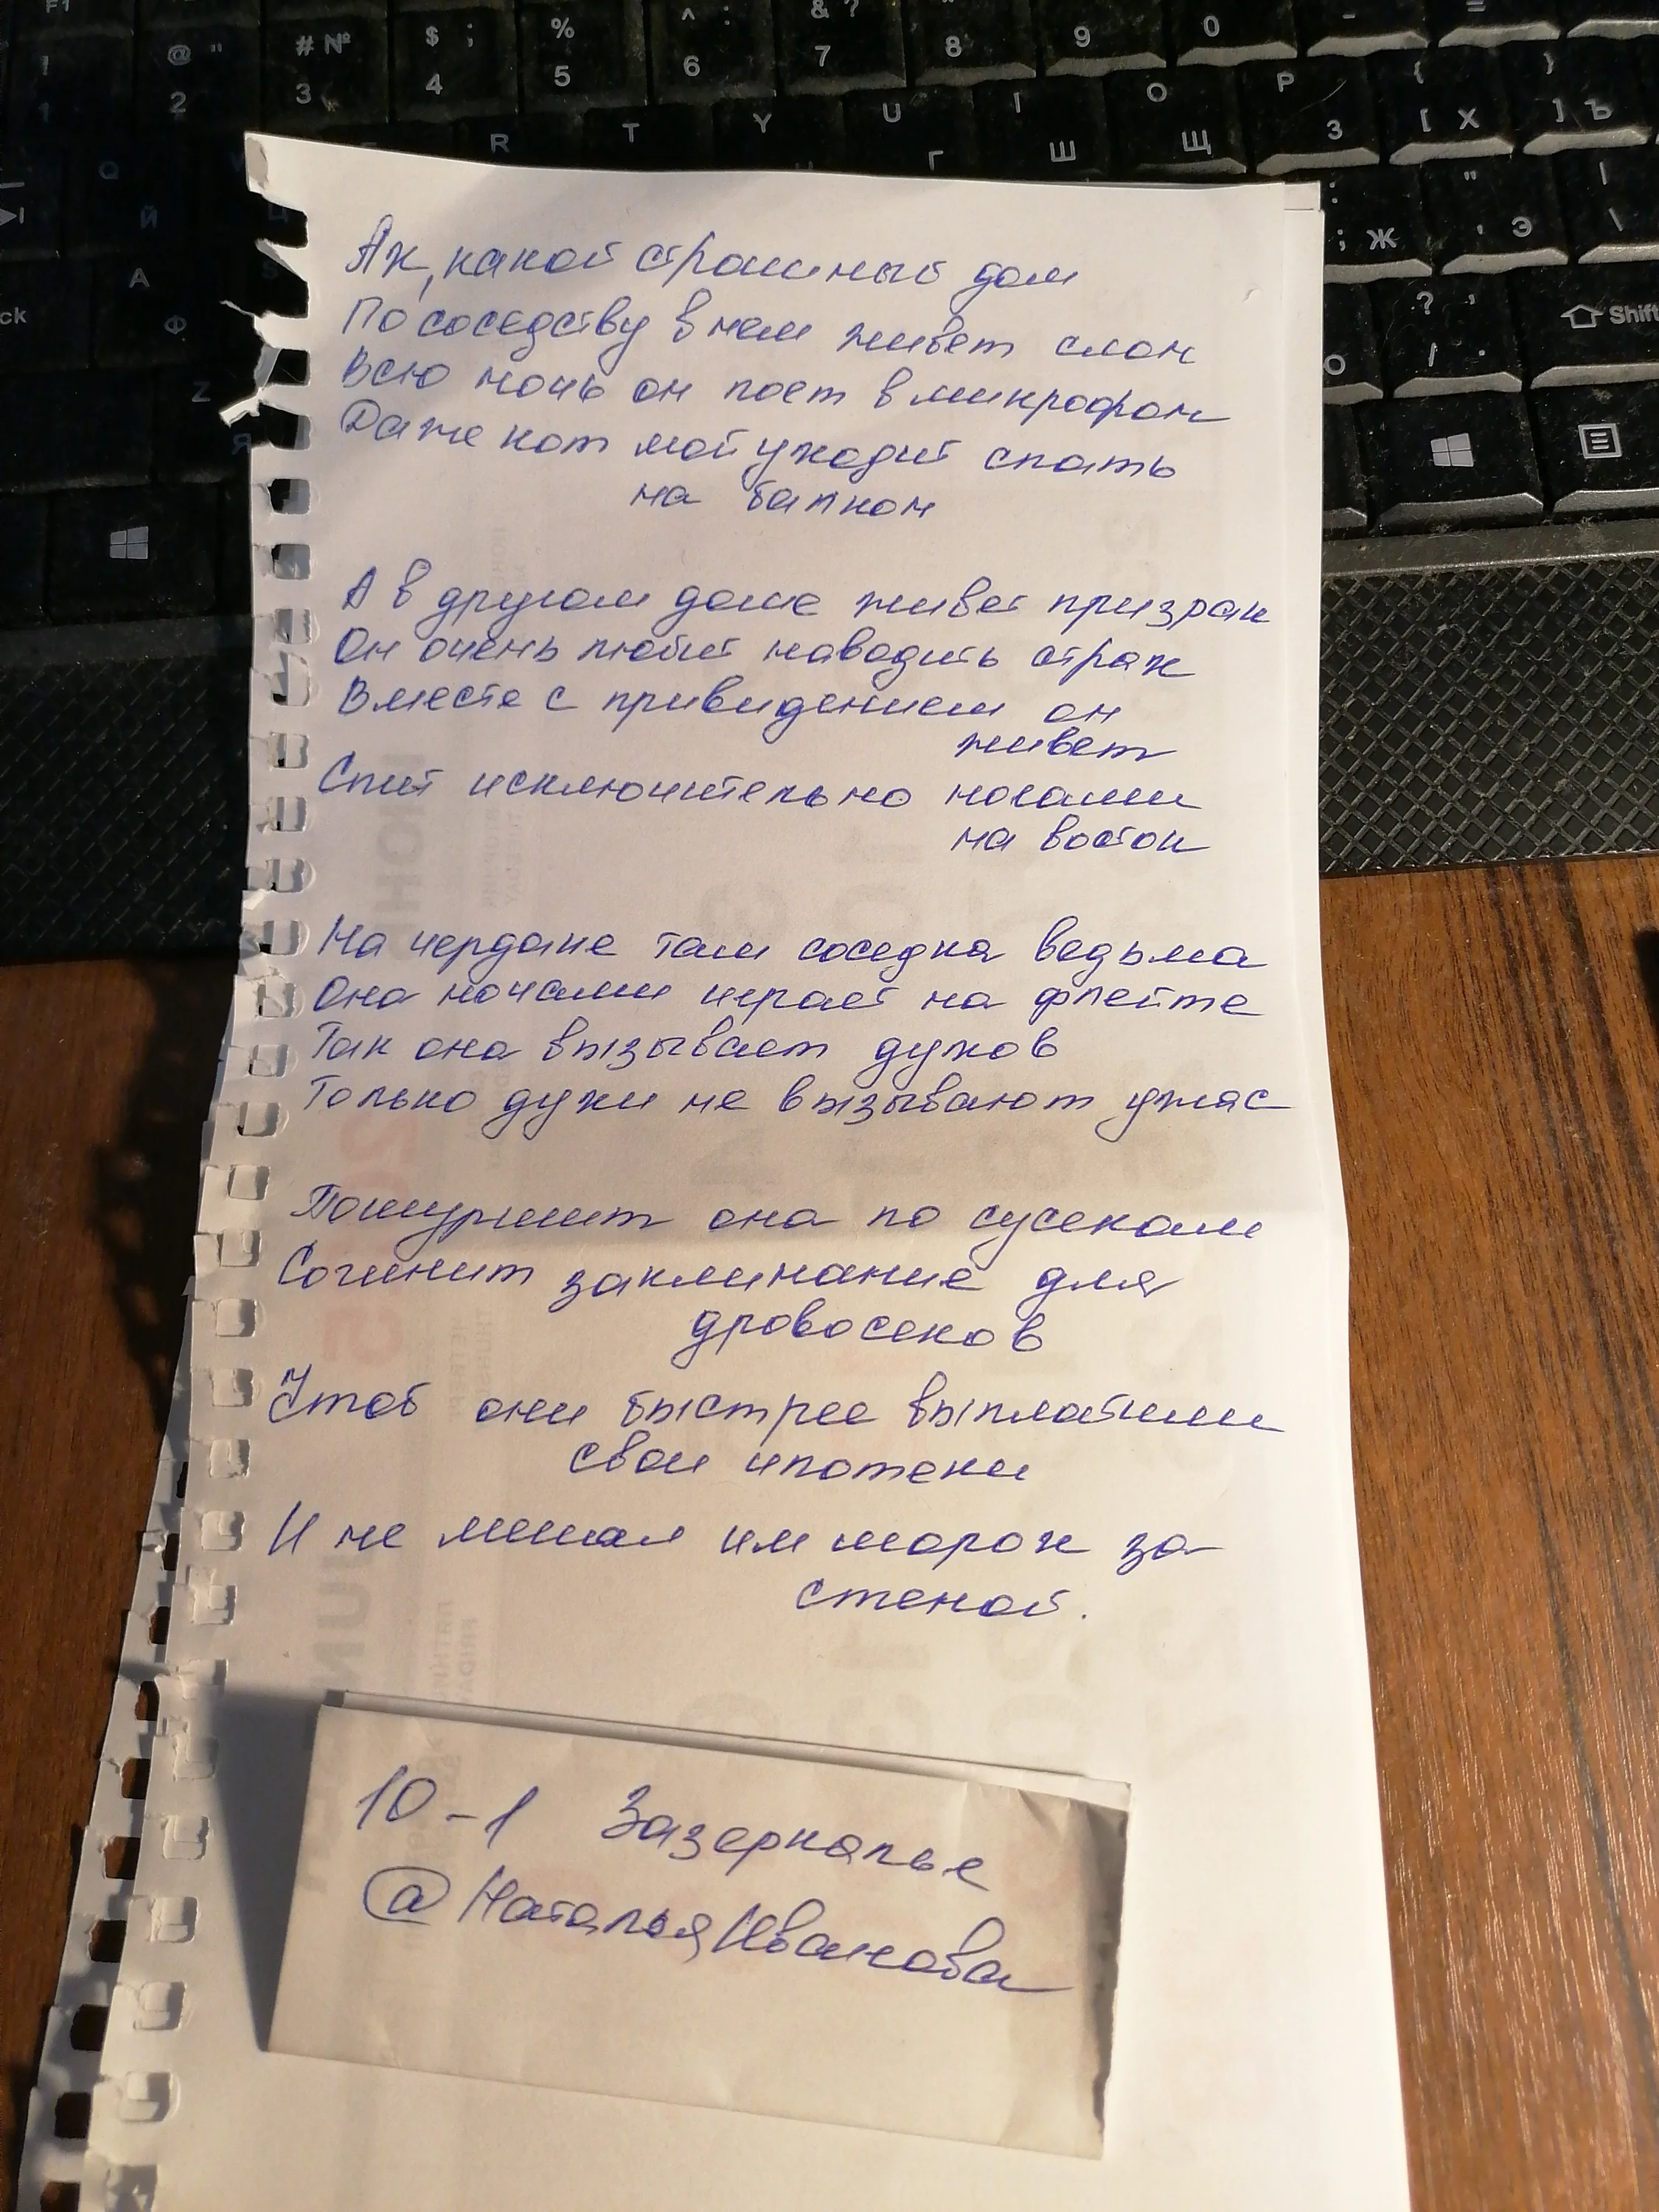 Ах, какой страшный дом
По соседству в нем живет слон
Всю ночь он поет в микрофон
Даже кот мой уходит спать
на балкон
А в другом доме живет призрак
Он очень любит наводить страх
Вместе с привидением он
живет
Спит исключительно ногами
на восток
На чердаке там соседка ведьма
Она ночами играет на флейте
Так она вызывает духов
Только духи не вызывают ужас
Пошуршит она по сусекам
Сочинит заклинание для
дровосеков
Чтоб они быстрее выплатили
свои ипотеки
И не мешал им шорох за
стеной.
10-1 Зазеркалье
@НатальяИванова